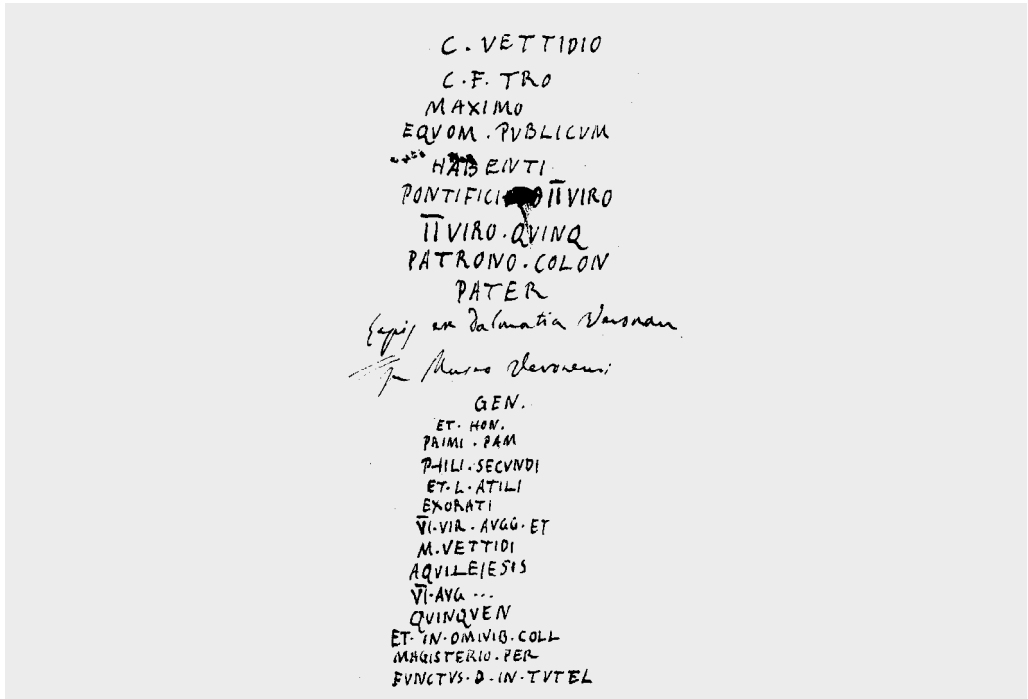 C. VETTIDIO
C. F. TRO
MAXIMO
EQVOM . PVBLICVM
HABENTI
PONTIFICI II̅VIRO
I̅I̅VIRO. QVINQ
PATRONO . COLON
PATER
ex Dalmatia
Museo Veronensi
GEN.
ET. HON.
PRIMI . PAM
PHILI. SECVNDI
ET. L. ATILI
EXORATI
V̅I̅. VIR. AVGG. ET
M. VETTIDI
AQVILEIESIS
V̅I̅. AVG ...
QVINQVEN
ET. IN. OMNIB. COLL
MAGISTERIO. PER
FVNCTVS. D. IN. TVTEL